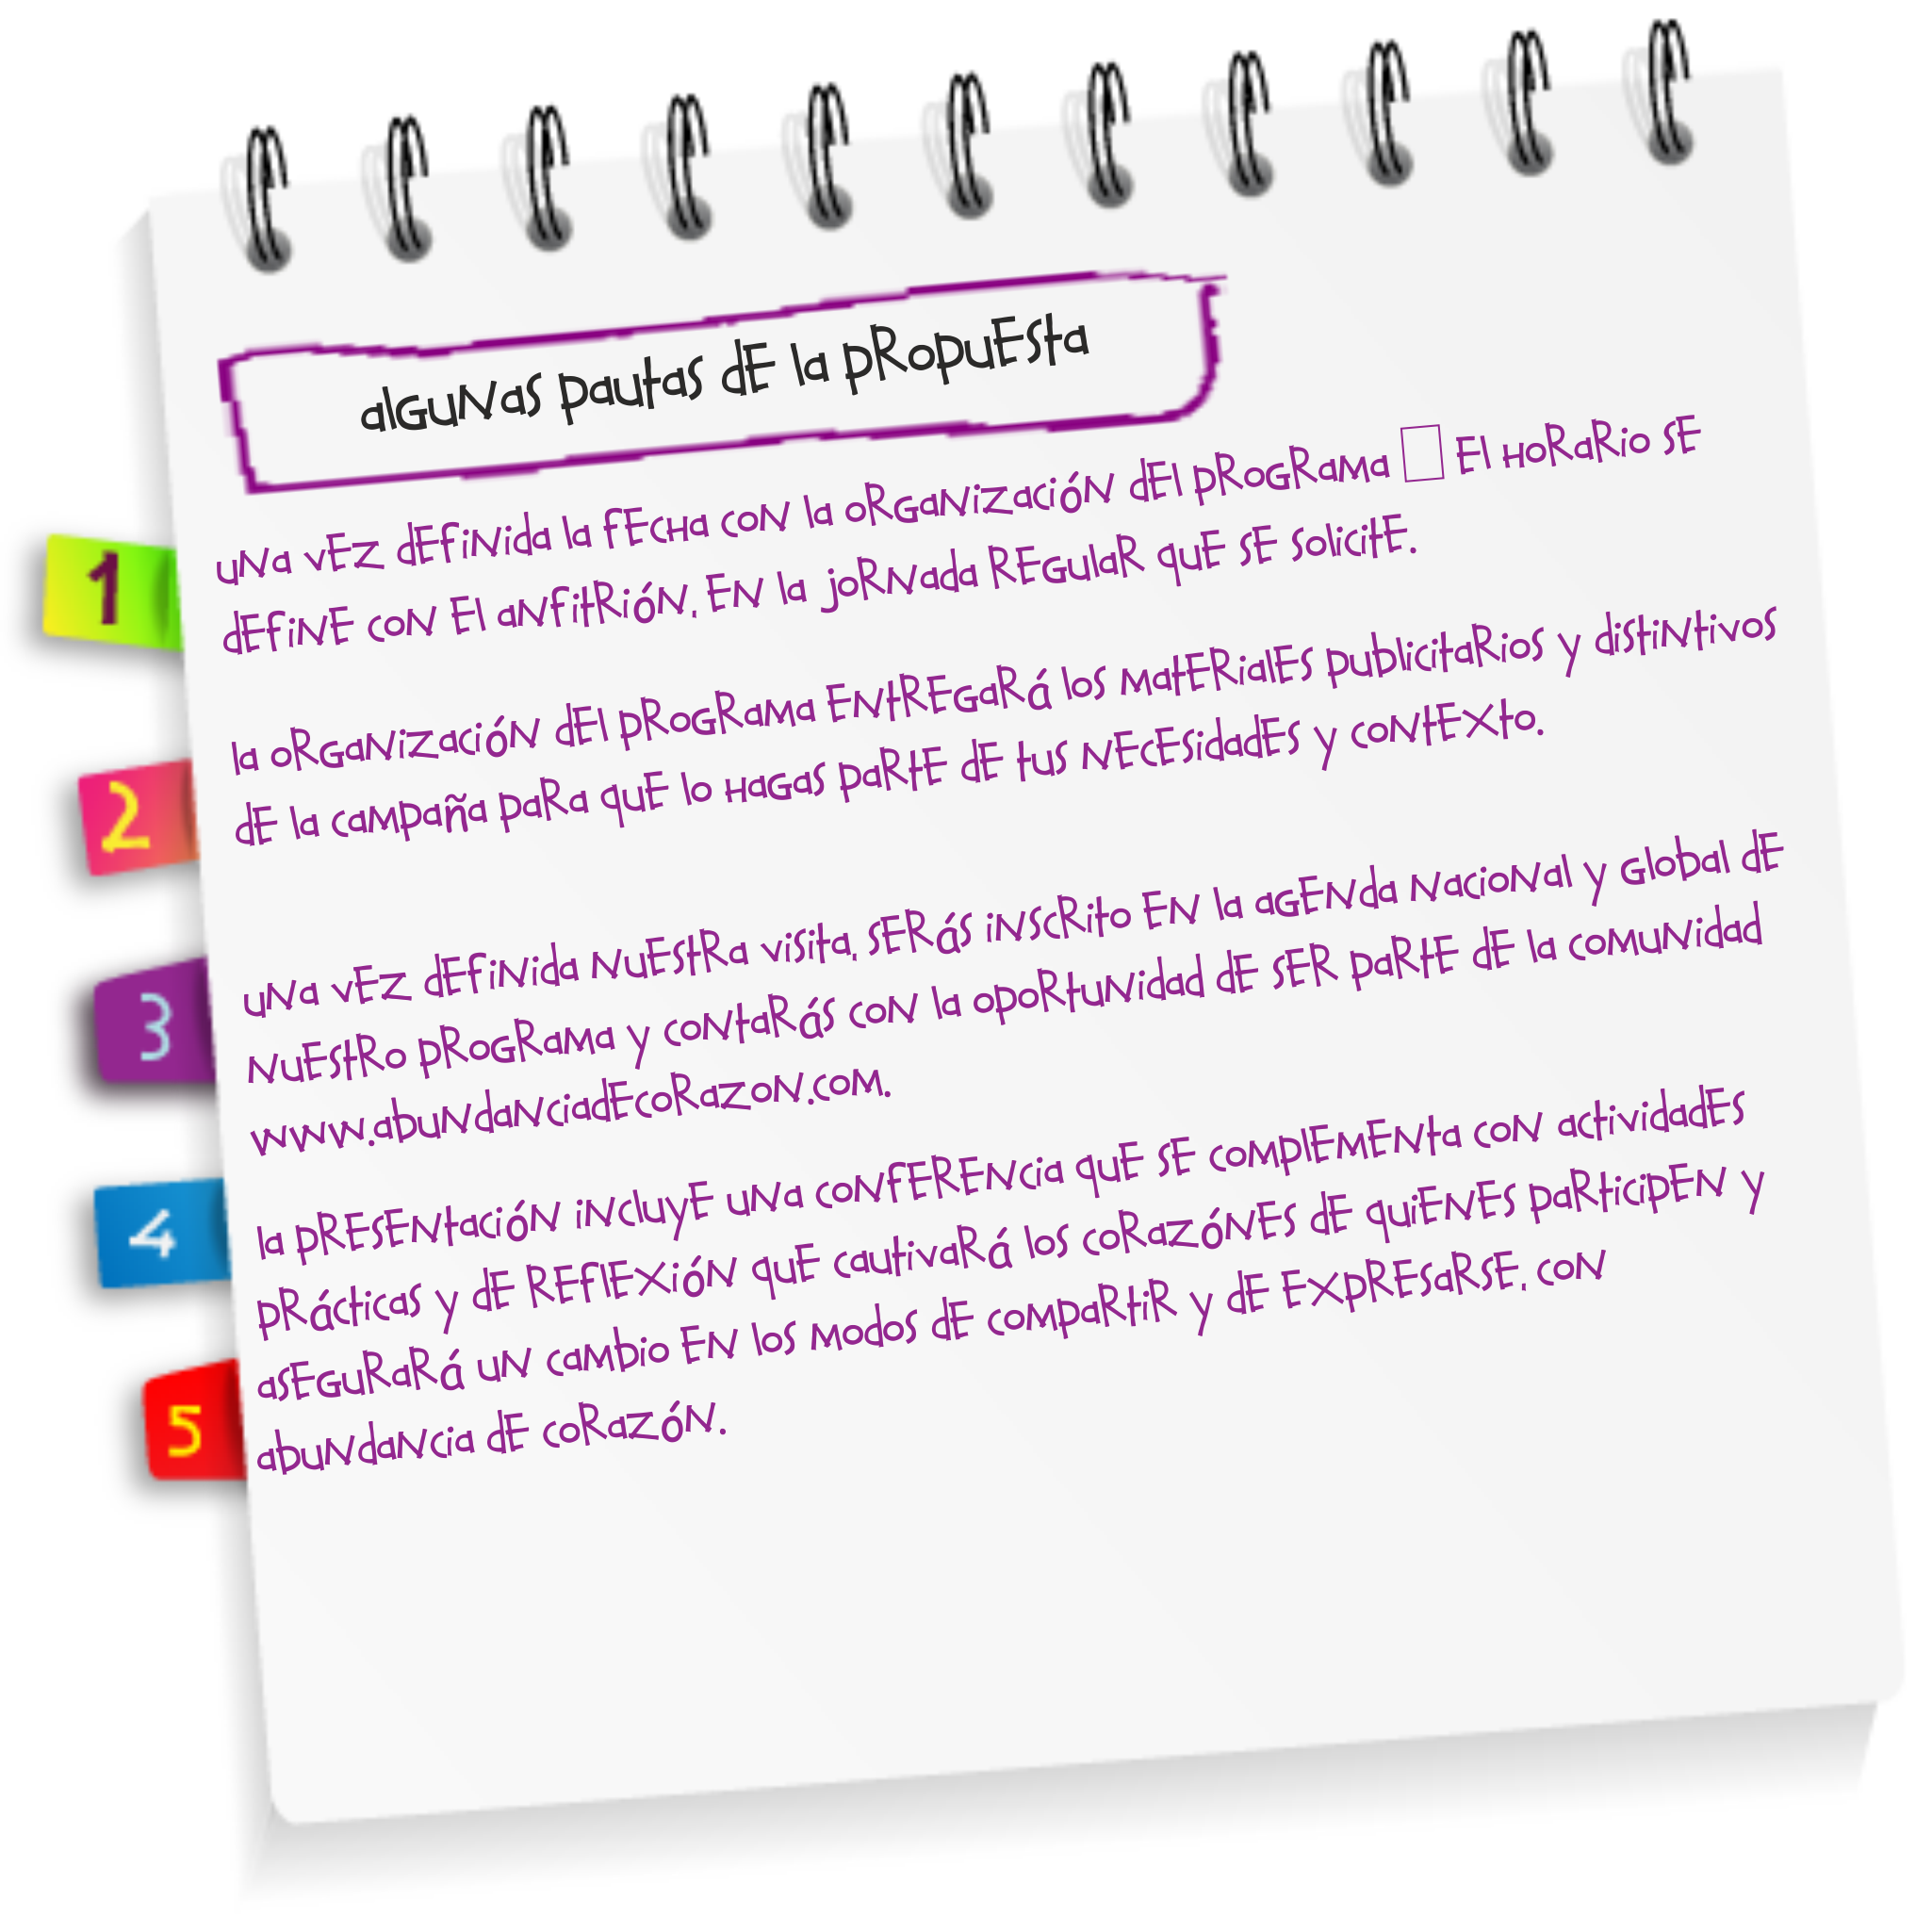 algunas pautas de la propuesta
una vez definida la fecha con la organización del programa □ el horario se
define con el anfitrión, en la jornada regular que se solicite.
1
la organización del programa entregará los materiales publicitarios y distintivos
de la campaña para que lo hagas parte de tus necesidades y contexto.
2
una vez definida nuestra visita, serás inscrito en la agenda nacional y global de
nuestro programa y contarás con la oportunidad de ser parte de la comunidad
www.abundanciadecorazon.com.
3
la presentación incluye una conferencia que se complementa con actividades
prácticas y de reflexión que cautivará los corazónes de quienes participen y
asegurará un cambio en los modos de compartir y de expresarse, con
abundancia de corazón.
4
5